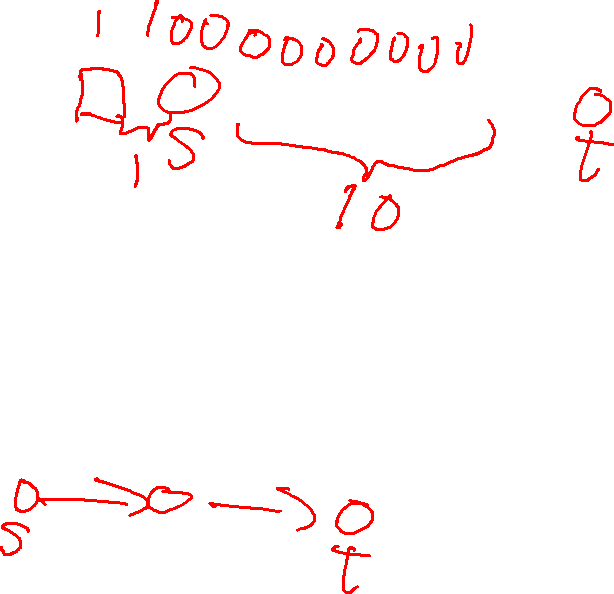 1 1000000000
1 s t
10
s t